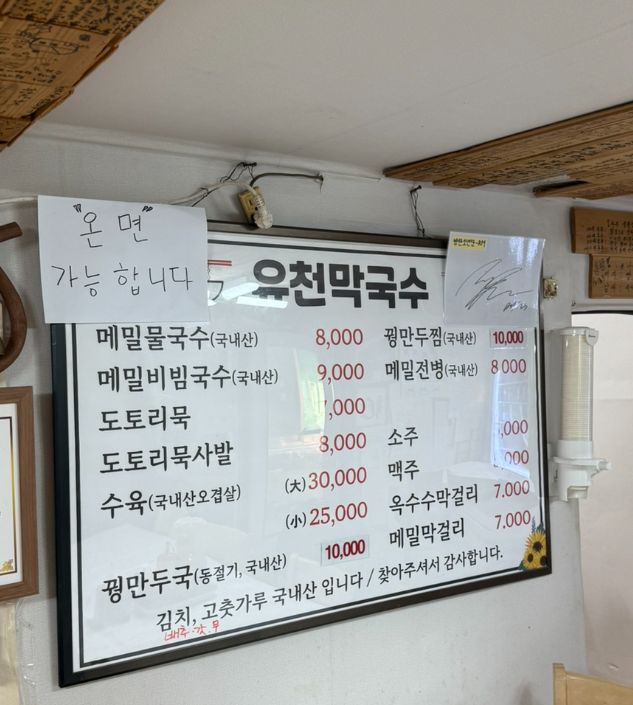 "온면"
가능합니다
유천막국수
메밀물국수(국내산) 8,000
메밀비빔국수(국내산) 9,000
도토리묵 ,000
도토리묵사발 8,000
수육(국내산오겹살) (大)30,000
(小)25,000
꿩만두국(동절기, 국내산) 10,000
꿩만두찜(국내산) 10,000
메밀전병(국내산) 8,000
소주 ,000
맥주 ,000
옥수수막걸리 7.000
메밀막걸리 7.000
김치, 고춧가루 국내산 입니다 / 찾아주셔서 감사합니다.
배추.갓.무